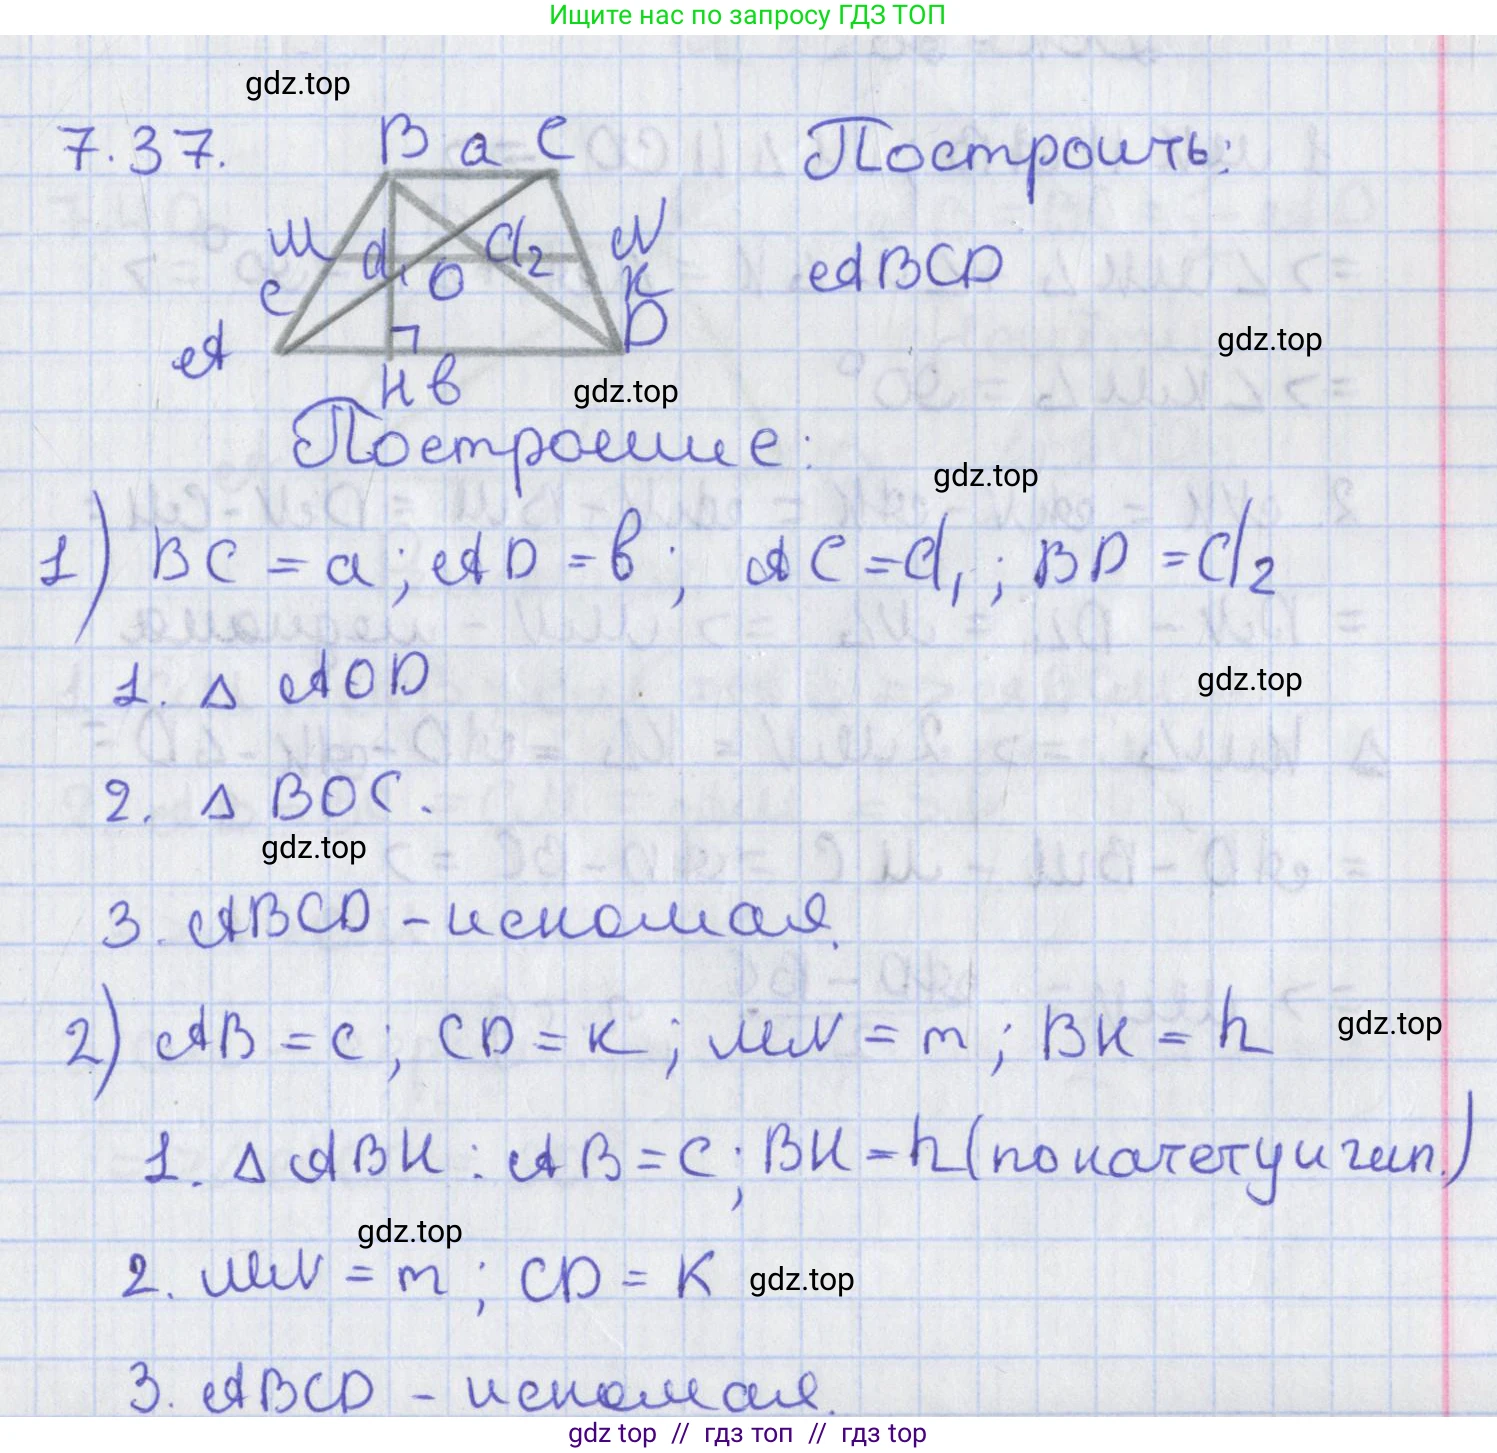 Ищите нас по запросу ГДЗ ТОП
gdz.top
7.37.
B a C
Построить:
M d₁ O d₂ N
c K
ABCD
A D
gdz.top
H в
gdz.top
Построение:
gdz.top
1) BC = a; AD = в; AC = d₁; BD = d₂
1. △ AOD
gdz.top
2. △ BOC.
gdz.top
3. ABCD – искомая.
2) AB = c; CD = к; MN = m; BH = h
gdz.top
1. △ ABH: AB = c; BH = h (по катету и гип.)
gdz.top
2. MN = m; CD = K
gdz.top
3. ABCD – искомая.
gdz top // гдз топ // гдз top